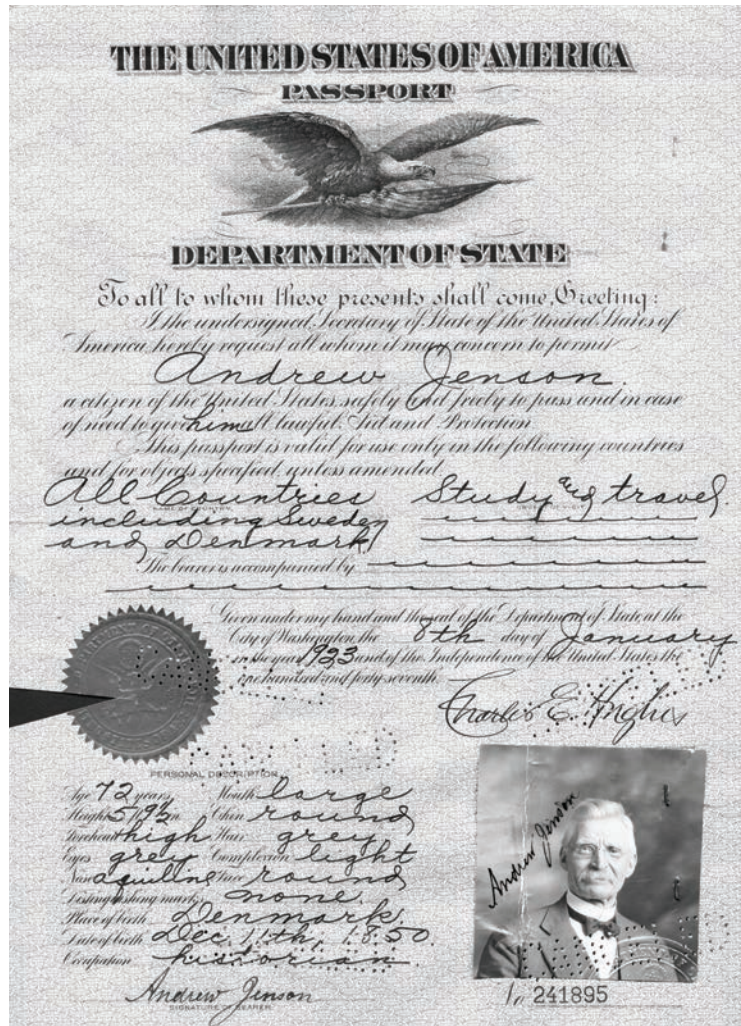 THE UNITED STATES OF AMERICA
PASSPORT
DEPARTMENT OF STATE
To all to whom these presents shall come, Greeting:
I the undersigned, Secretary of State of the United States of
America, hereby request all whom it may concern to permit
Andrew Jenson.
a citizen of the United States, safely and freely to pass and in case
of need to give him all lawful Aid and Protection
This passport is valid for use only in the following countries
and for objects specified, unless amended
All Countries Study and travel.
NAME OF COUNTRY
including Sweden
and Denmark
The bearer is accompanied by
Given under my hand and the seal of the Department of State, at the
City of Washington, the 8th day of January
in the year 1923 and of the Independence of the United States the
one hundred and forty seventh.
Charles E. Hughes
PERSONAL DESCRIPTION
Age 72 years Mouth large
Height 5 ft 9½ in Chin round
Forehead high Hair grey
Eyes grey Complexion light
Nose aquiline Face round
Distinguishing marks none
Place of birth Denmark
Date of birth Dec. 11th, 1850.
Occupation historian
Andrew Jenson
SIGNATURE OF BEARER
Andrew Jenson
No 241895